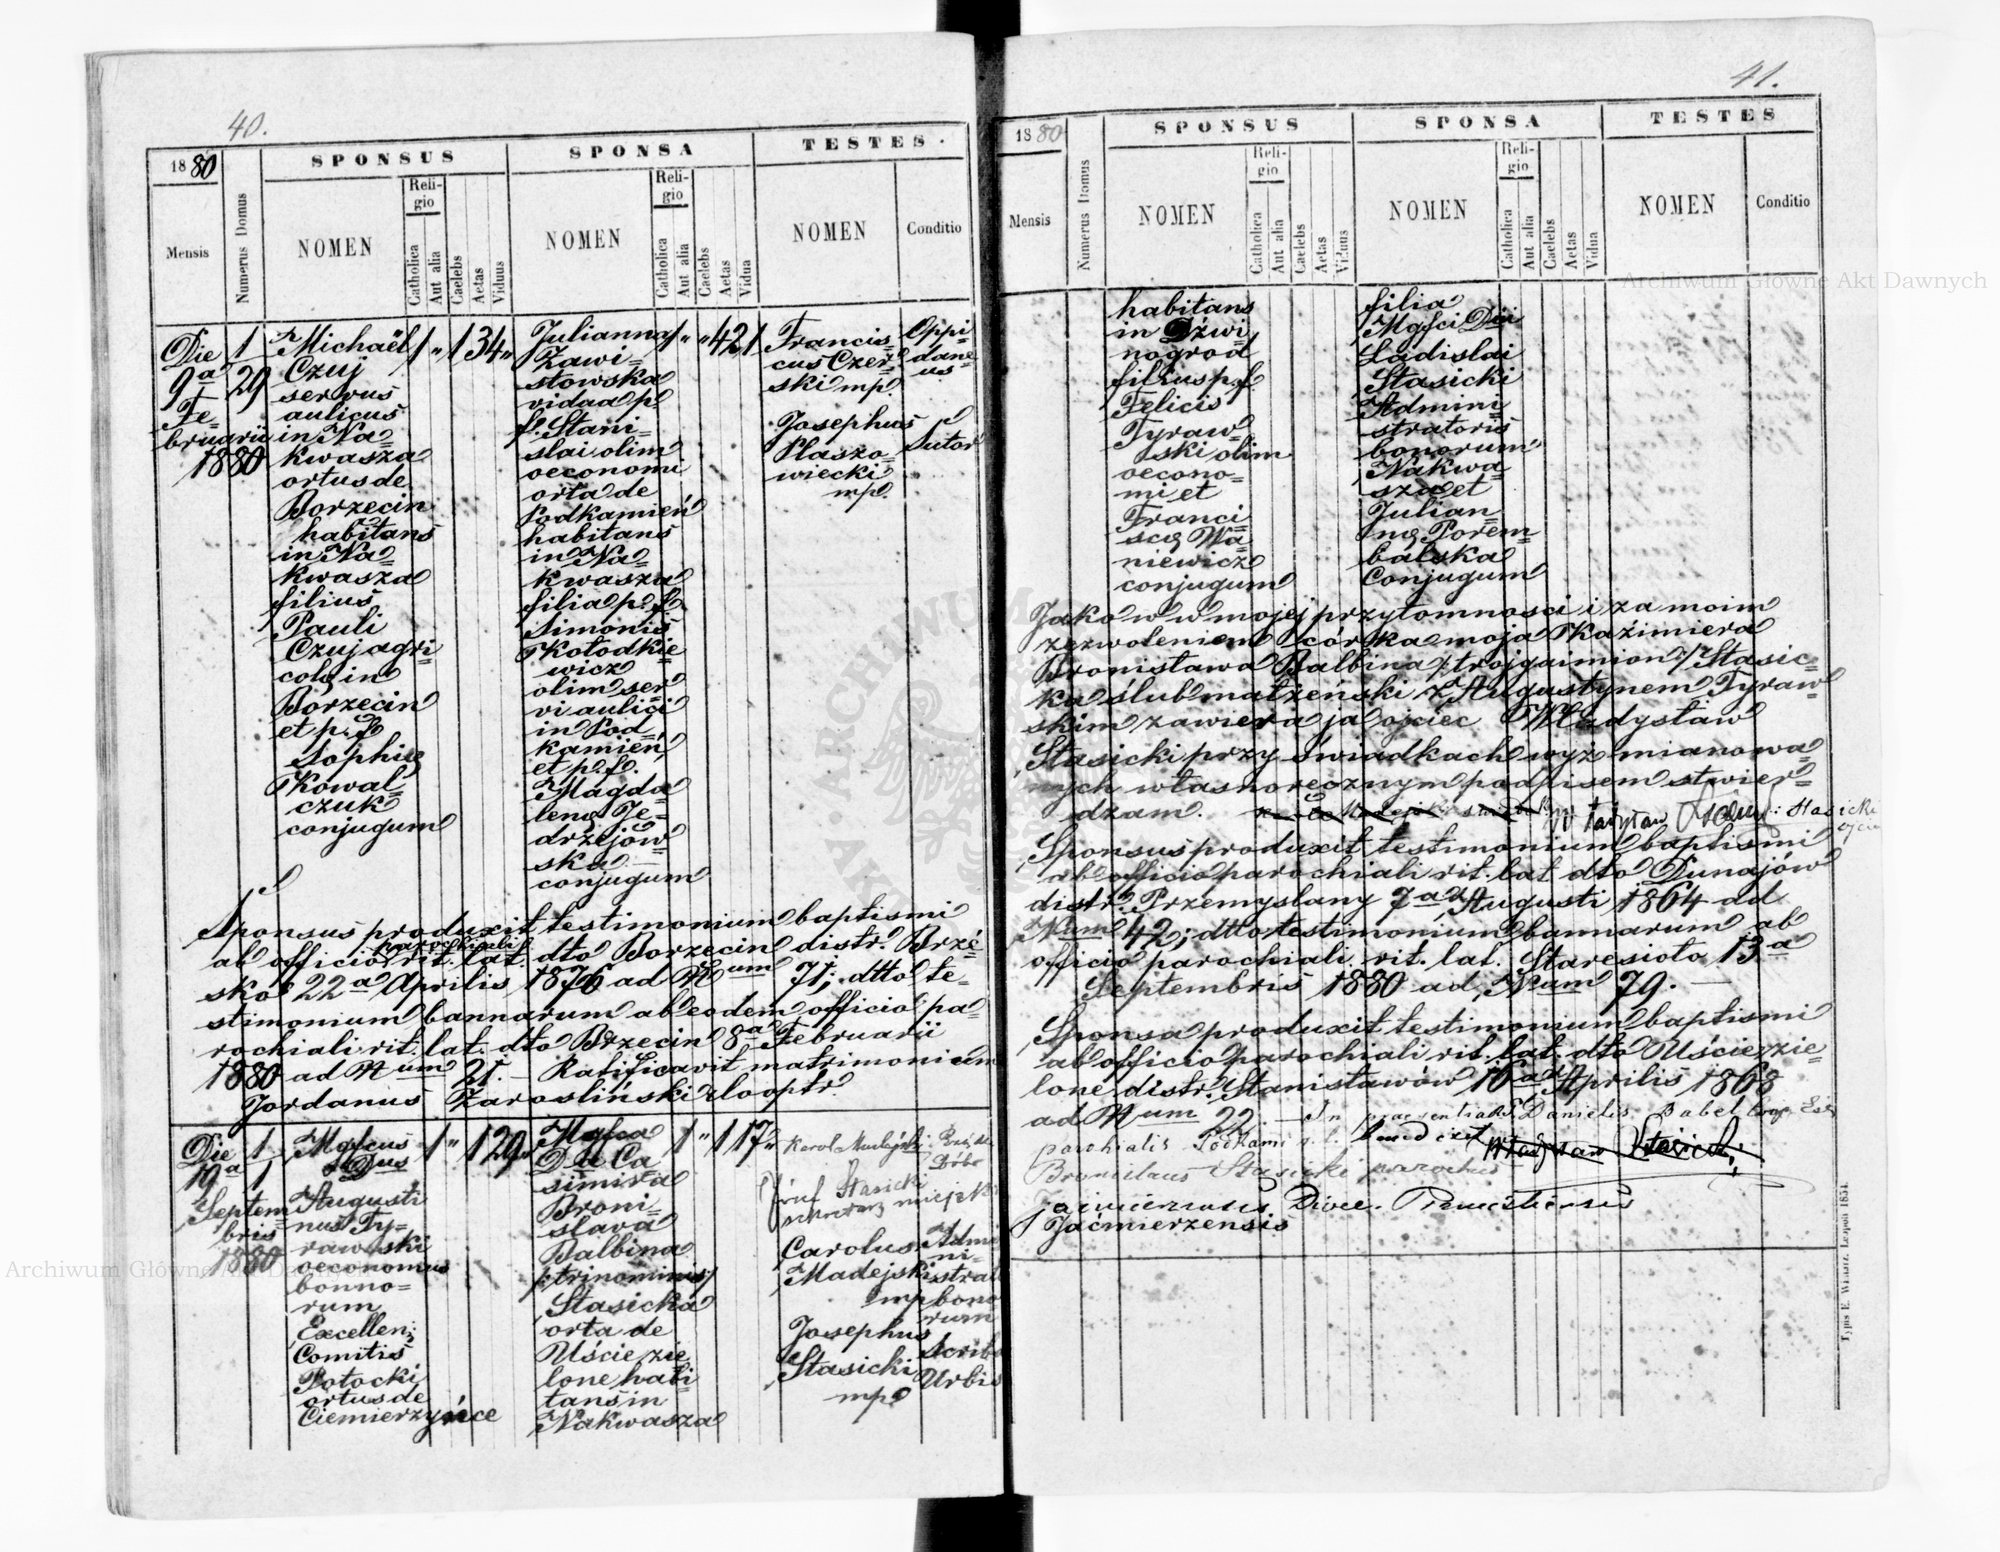 40.
1880
SPONSUS
SPONSA
TESTES.
Mensis
Numerus Domus
NOMEN
Reli-
gio
Catholica
Aut alia
Caelebs
Aetas
Viduus
NOMEN
Reli-
gio
Catholica
Aut alia
Caelebs
Aetas
Vidua
NOMEN
Conditio
Die
9a
Fe=
bruarii
1880
1
29
Michaël
Czuj
servus
aulicus
in Na=
kwasza
ortus de
Borzecin
habitans
in Na=
kwasza
filius
Pauli
Czuj agri=
colę in
Borzecin
et p. f.
Sophię
Kowal=
czuk
conjugum
1 " 1 34 "
Julianna
Zawi=
stowska
vidua p.
f. Stani=
slai olim
oeconomi
orta de
Podkamień
habitans
in Na=
kwasza
filia p. f.
Simonis
Kołodkie=
wicz
olim ser=
vi aulici
in Pod=
kamień
et p. f.
Magda=
lenę Je=
drzejow=
ska
conjugum
1 " " 42 1
Francis=
cus Czer=
ski mp.
Josephus
Płaszo=
wiecki
mp.
Oppi=
dane=
us
Sutor
Sponsus produxit testimonium baptismi
ab officio parochiali rit. lat. dto Borzecin distr. Brzé=
sko 22a Aprilis 1876 ad Num 71; dtto te=
stimonium bannarum ab eodem officio pa=
rochiali rit. lat. dto Brzecin 8a Februarii
1880 ad Num 21. Ratificavit matrimonium
Jordanus Zarosliński
Die
19a
Septem
bris
1880
1
1
Mgfcus
Dus
Augusti
nus Ty=
rawski
oeconomus
bonno=
rum
Excellen:
Comitis
Potocki
ortus de
Ciemierzyńce
1 " 1 29 "
Mgfca
Da Ca
simira
Broni=
slava
Balbina
/:trinominis/
Stasicka
orta de
Uście zie
lone habi
tans in
Nakwasza
1 " 1 17 "
Karol Madejski
Józef Stasicki
sekretarz miejski
Carolus
Madejski
mp
Josephus
Stasicki
mp
Admi
ni=
strat
bono
rum
Scriba
Urbis
41.
1880
SPONSUS
SPONSA
TESTES
Mensis
Numerus Domus
NOMEN
Reli-
gio
Catholica
Aut alia
Caelebs
Aetas
Viduus
NOMEN
Reli-
gio
Catholica
Aut alia
Caelebs
Aetas
Vidua
NOMEN
Conditio
habitans
in Dźwi
nogrod
filius p. f.
Felicis
Tyraw=
ski olim
oecono=
mi et
Franci=
scę Wa=
niewicz
conjugum
filia
Mgfci Dni
Ladislai
Stasicki
Admini=
stratoris
bonorum
Nakwa=
sza et
Julian=
nę Porem=
balska
Conjugum
Jako w w mojej przytomności i za moim
zezwoleniem córka moja Kaźimiera
Bronisława Balbina /:trojgaimion:/ Stasic=
ka ślub małżeński z Augustynem Tyraw=
skim zawiera ja ojciec Władysław
Stasicki przy świadkach wyż mianowa=
nych własnoręcznym podpisem stwier=
dzam.
Władysław Stasicki
ojciec
Sponsus produxit testimonium baptismi
ab officio parochiali rit. lat dto Dunajów
distr. Przemyslany 7a Augusti 1864 ad
Num 42; dtto testimonium bannarum ab
officio parochiali rit. lat. Staresioło 13.a
Septembris 1880 ad Num 79.
Sponsa produxit testimonium baptismi
ab officio parochiali rit. lat. dto Uście zie=
lone distr. Stanisławów 16a Aprilis 1868
ad Num 22. In praesentia P. Danielis Babel
parochialis benedixit
Bronislaus Stasicki parochus
Dioec.
Jaćmierzensis
Typis E. Winiarz, Leopoli 1854.
Archiwum Główne Akt Dawnych
Archiwum Główne Akt Dawnych